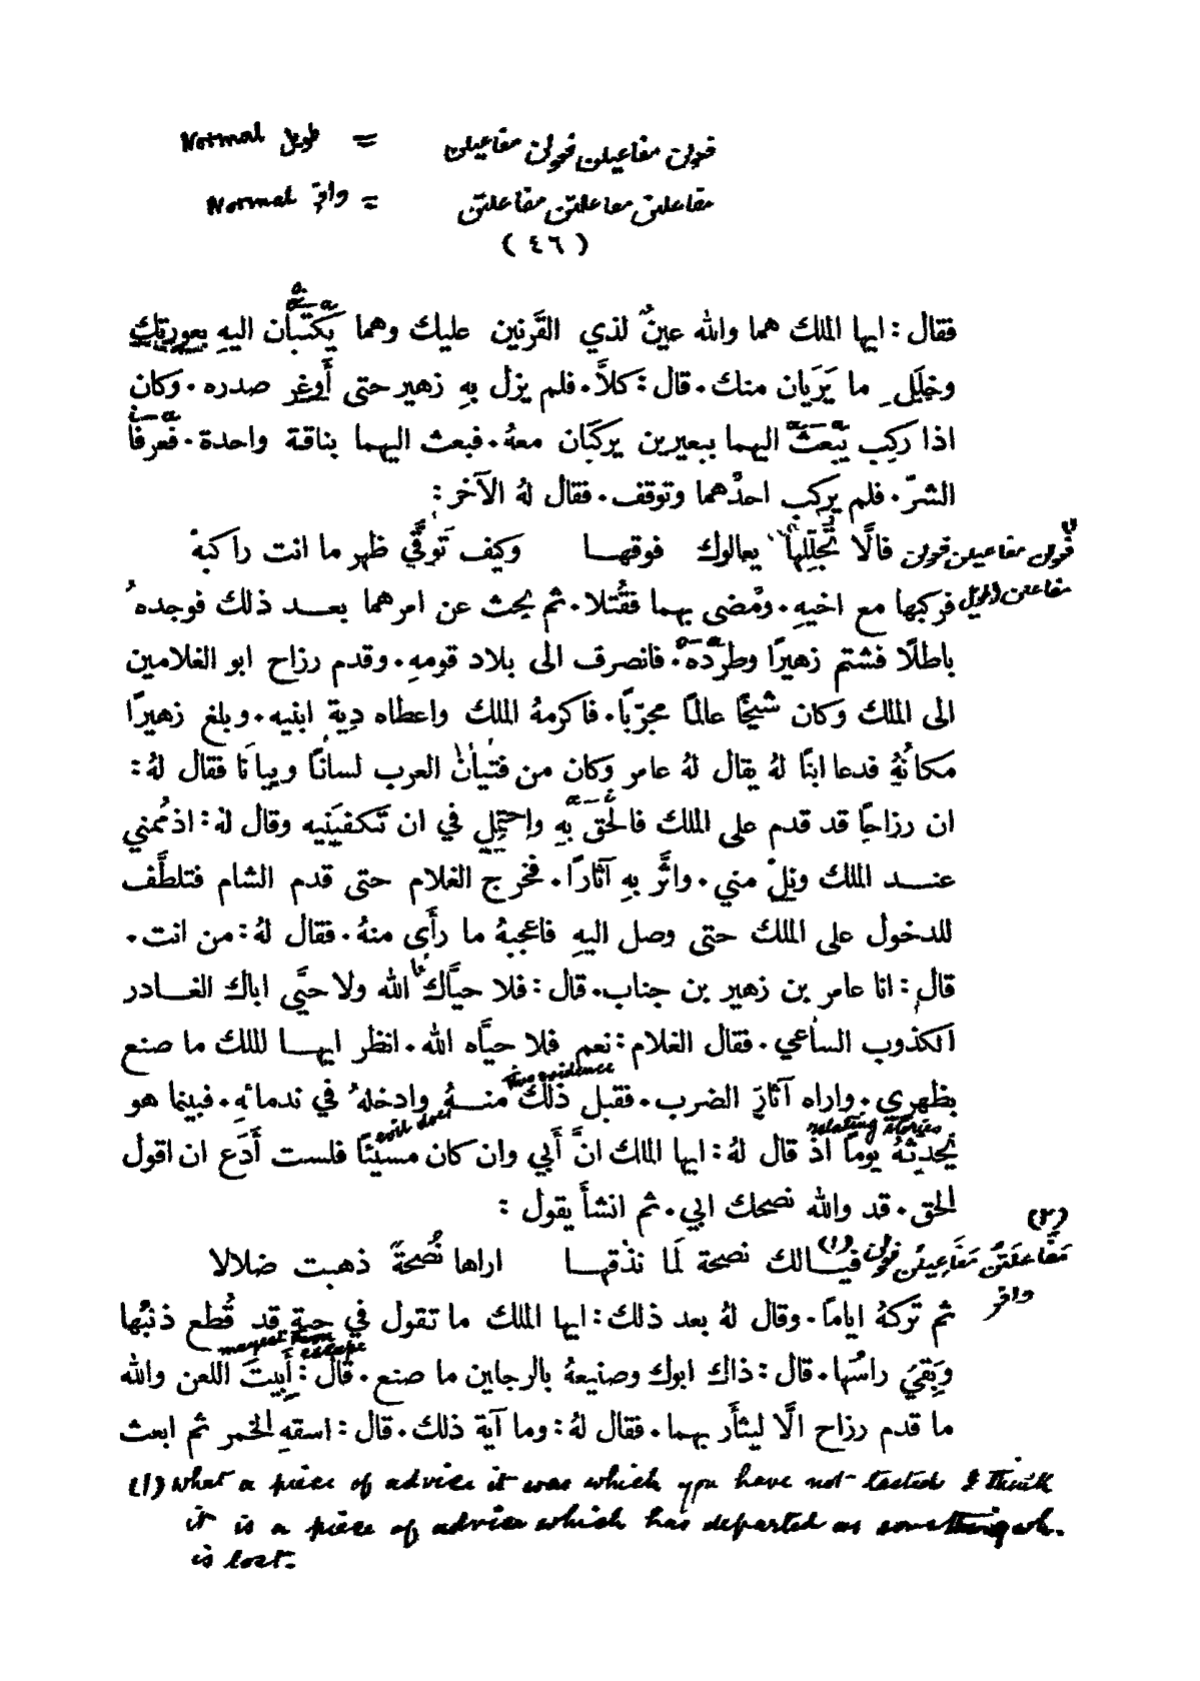 فعولن مفاعيلن فعولن مفاعيلن = طويل Normal
مفاعلتن مفاعلتن مفاعلتن = وافر Normal
( ٤٦ )
فقال : ايها الملك هما والله عينٌ لذي القَرنين عليك وهما يَكتُبان اليهِ بعورتك
وخلَل ما يَرَيان منك . قال : كلاَّ . فلم يزل بهِ زهير حتى أَوغر صدره . وكان
اذا ركب يَبْعَث اليهما ببعيرين يركبان معهُ . فبعث اليهما بناقة واحدة . فعرفا
الشرّ . فلم يركب احدُهما وتوقف . فقال لهُ الآخر :
فعولن مفاعيلن فعولن فالَّا تُجلّلها يعالوك فوقهـا وكيف تَوقَّي ظهر ما انت راكبهْ
مفاعلن طويل فركبها مع اخيهِ . ومُضى بهما فقُتلا . ثم بحث عن امرهما بعـد ذلك فوجدهُ
باطلًا فشتم زهيرًا وطرَدَه . فانصرف الى بلاد قومهِ . وقدم رزاح ابو الغلامين
الى الملك وكان شيخًا عالمًا مجرّبًا . فاكرمهُ الملك واعطاه دية ابنيه . وبلغ زهيرًا
مكانهُ فدعا ابنًا لهُ يقال لهُ عامر وكان من فتيان العرب لسانًا وبيانًا فقال لهُ :
ان رزاحًا قد قدم على الملك فالحَق بهِ واحتَل في ان تكفينيه وقال لهُ : اذمُمني
عنـد الملك ونِلْ مني . واثَّر بهِ آثارًا . فخرج الغلام حتى قدم الشام فتلطَّف
للدخول على الملك حتى وصل اليهِ فاعجبهُ ما رأَى منهُ . فقال لهُ : من انت .
قال : انا عامر بن زهير بن جناب . قال : فلا حيَّاك الله ولا حيَّى اباك الغـادر
الكذوب الساعي . فقال الغلام : نعم فلا حيَّاه الله . انظر ايهـا الملك ما صنع
the evidence
بظهري . واراه آثارَ الضرب . فقبل ذلك منـهُ وادخلهُ في ندمائهِ . فبينما هو
evil doer relating stories
يُحدِثهُ يومًا اذ قال لهُ : ايها الملك انَّ أَبي وان كان مسيئًا فلست أَدَع ان اقول
الحق . قد والله نصحك ابي . ثم انشأ يقول :
(٢)
مفاعلتن مفاعيلن فعولن (١) فيـا لك نصحة لَما نذُقهـا اراها نُصحةً ذهبت ضلالا
وافر
ثم تركهُ ايامًا . وقال لهُ بعد ذلك : ايها الملك ما تقول في حية قد قُطع ذنَبُها
mayest thou escape
وبَقيَ راسُها . قال : ذاك ابوك وصنيعهُ بالرجلين ما صنع . قال : أَبيتَ اللعن والله
ما قدم رزاح الَّا ليثأَر بهما . فقال لهُ : وما آية ذلك . قال : اسقهِ الخمر ثم ابعث
(1) What a piece of advice it was which you have not tasted I think
it is a piece of advice which has departed as something wh.
is lost.